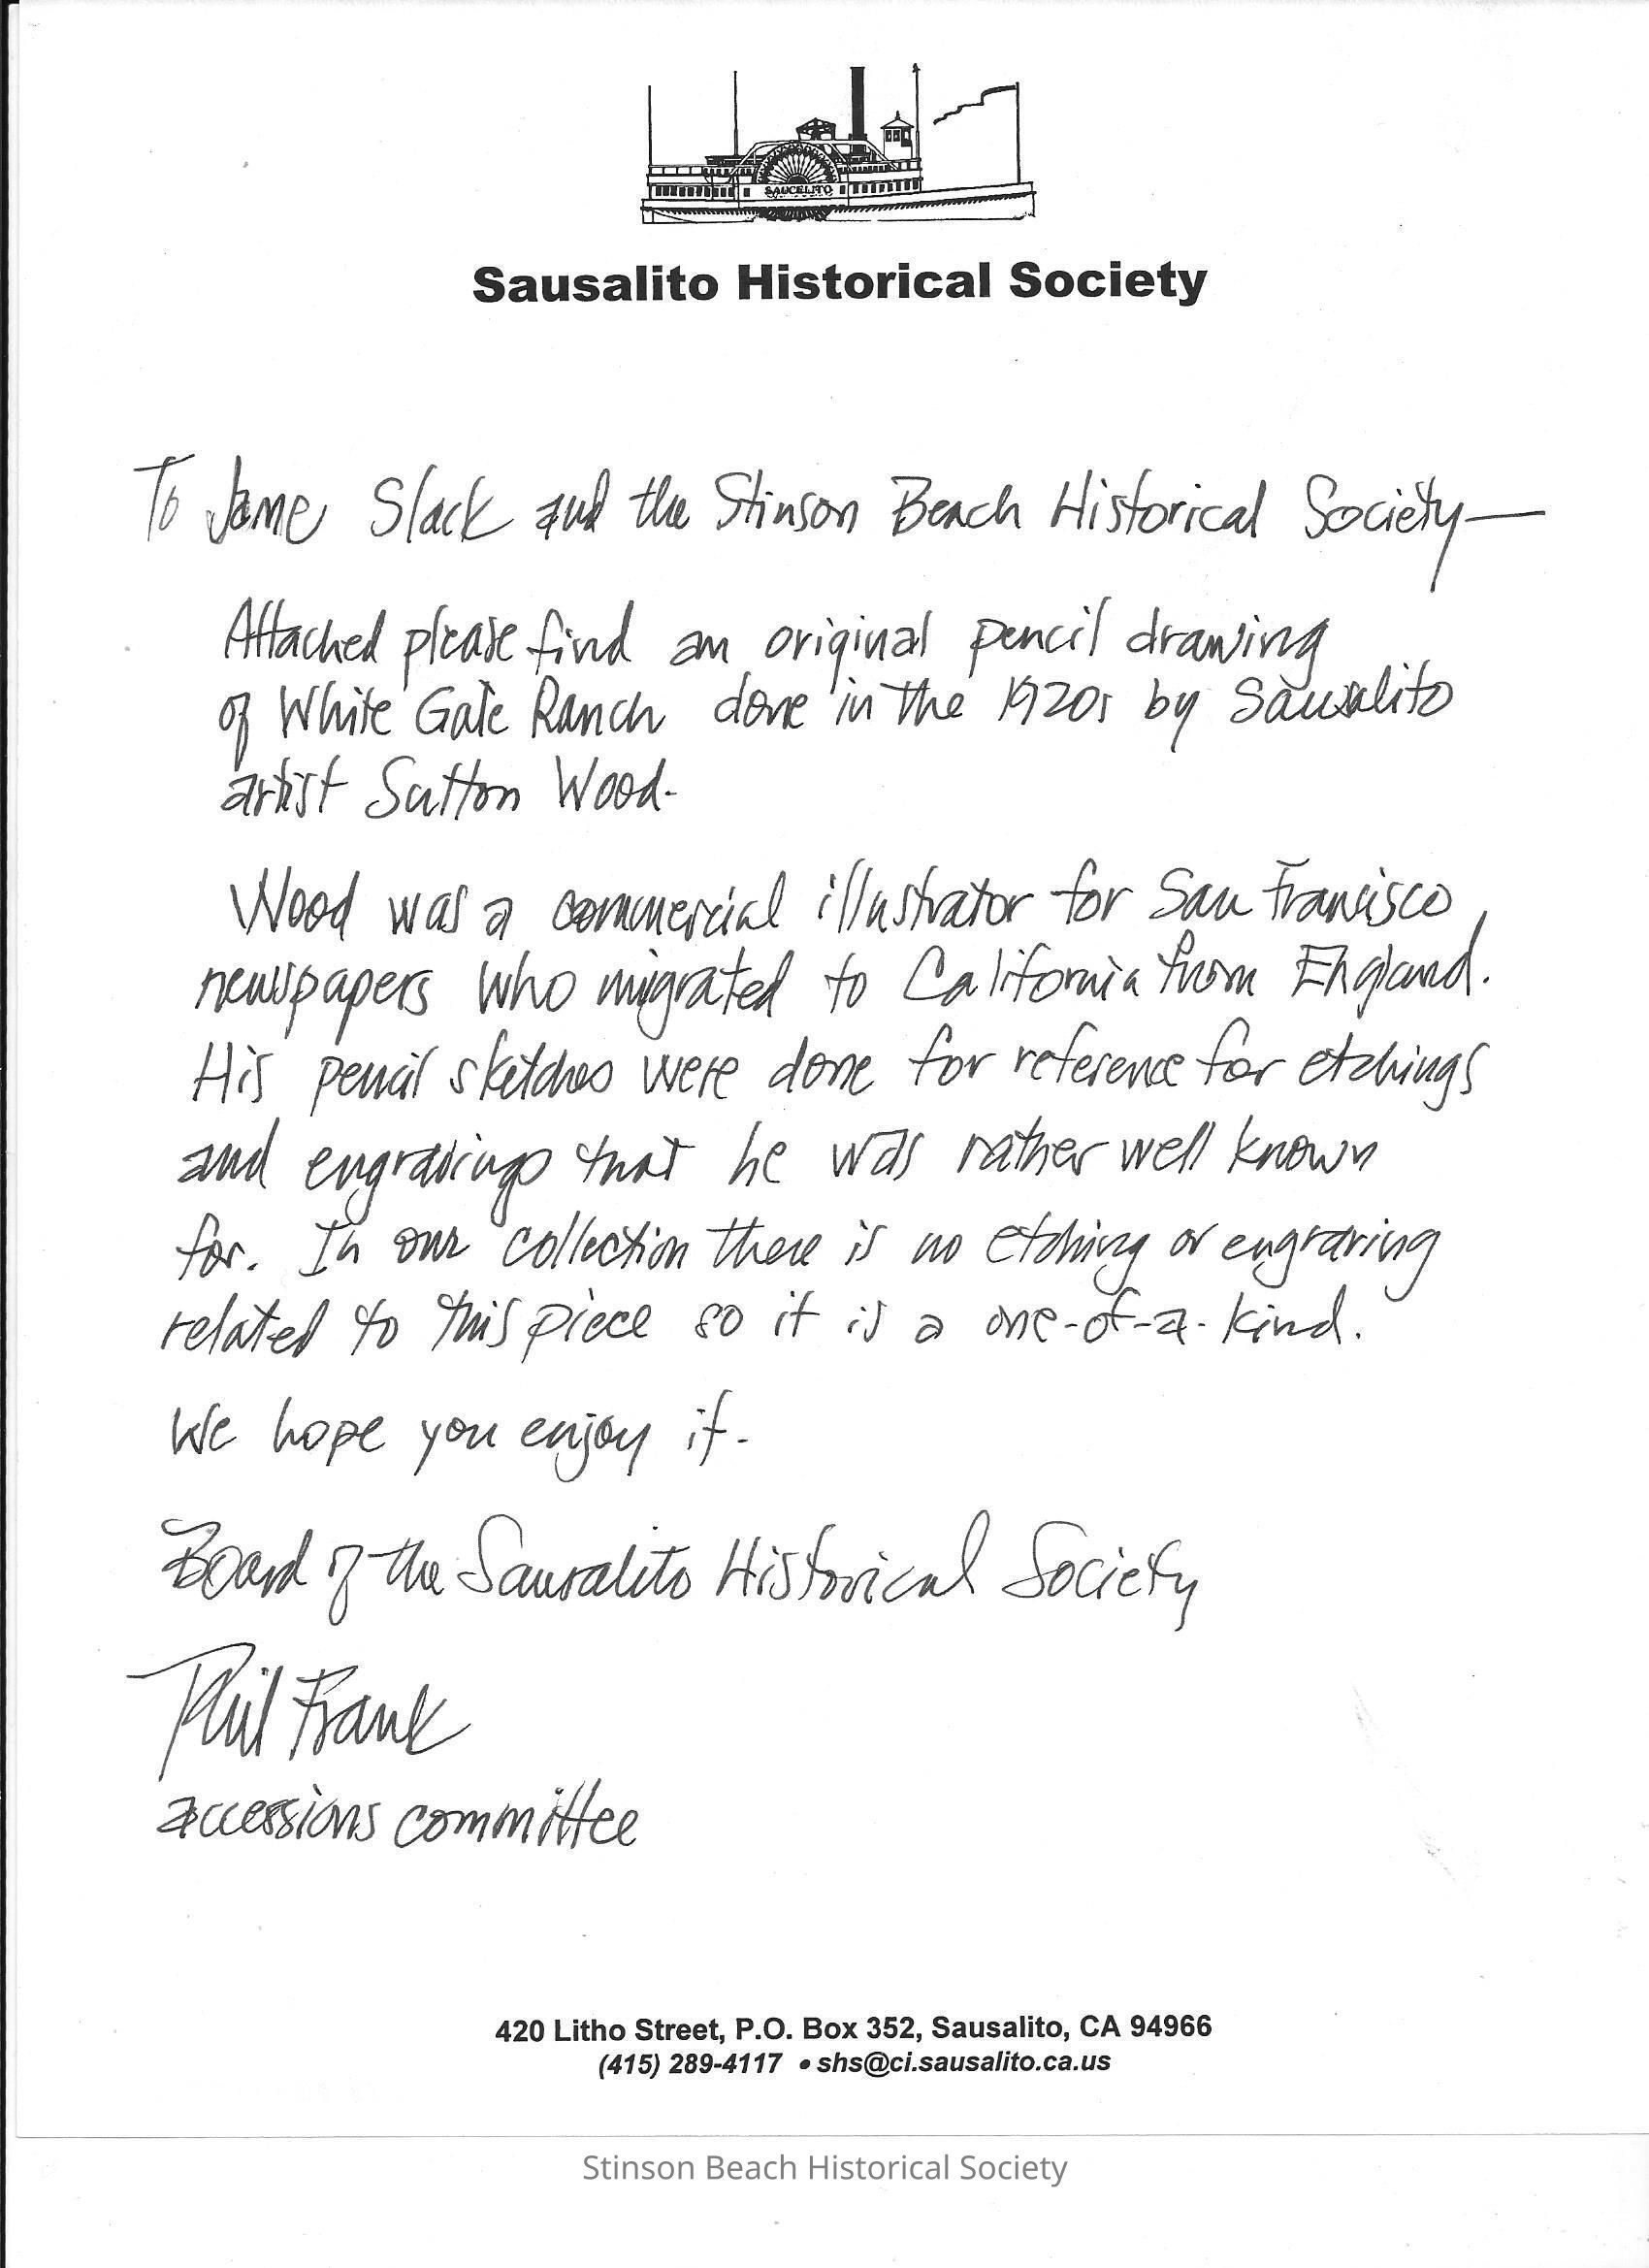 SAUCELITO
Sausalito Historical Society
To Jane Slack and the Stinson Beach Historical Society—
Attached please find an original pencil drawing
of White Gate Ranch done in the 1920s by Sausalito
artist Sutton Wood.
Wood was a commercial illustrator for San Francisco
newspapers who migrated to California from England.
His pencil sketches were done for reference for etchings
and engravings that he was rather well known
for. In our collection there is no etching or engraving
related to this piece so it is a one-of-a-kind.
We hope you enjoy it.
Board of the Sausalito Historical Society
Phil Frank
accessions committee
420 Litho Street, P.O. Box 352, Sausalito, CA 94966
(415) 289-4117 • shs@ci.sausalito.ca.us
Stinson Beach Historical Society